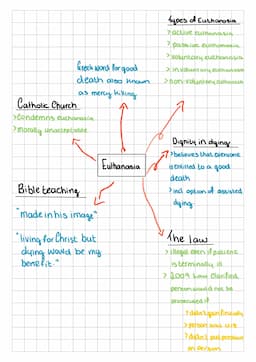 Types of Euthanasia
> active euthanasia
> passive euthanasia
> voluntary euthanasia
> involuntary euthanasia
> non-voluntary euthanasia
Greek word for good
death also known
as mercy killing
Catholic Church
> condemns euthanasia
> morally unacceptable
Euthanasia
Dignity in dying
> believes that everyone
is entitled to a good
death
> incl option of assisted
dying
Bible teaching
"made in his image"
"living for Christ but
dying would be my
benefit"
The law
> illegal even if patient
is terminally ill
> 2009 law clarified
person would not be
prosecuted if
> didn't gain financially
> person was ill
> didn't put pressure
on person